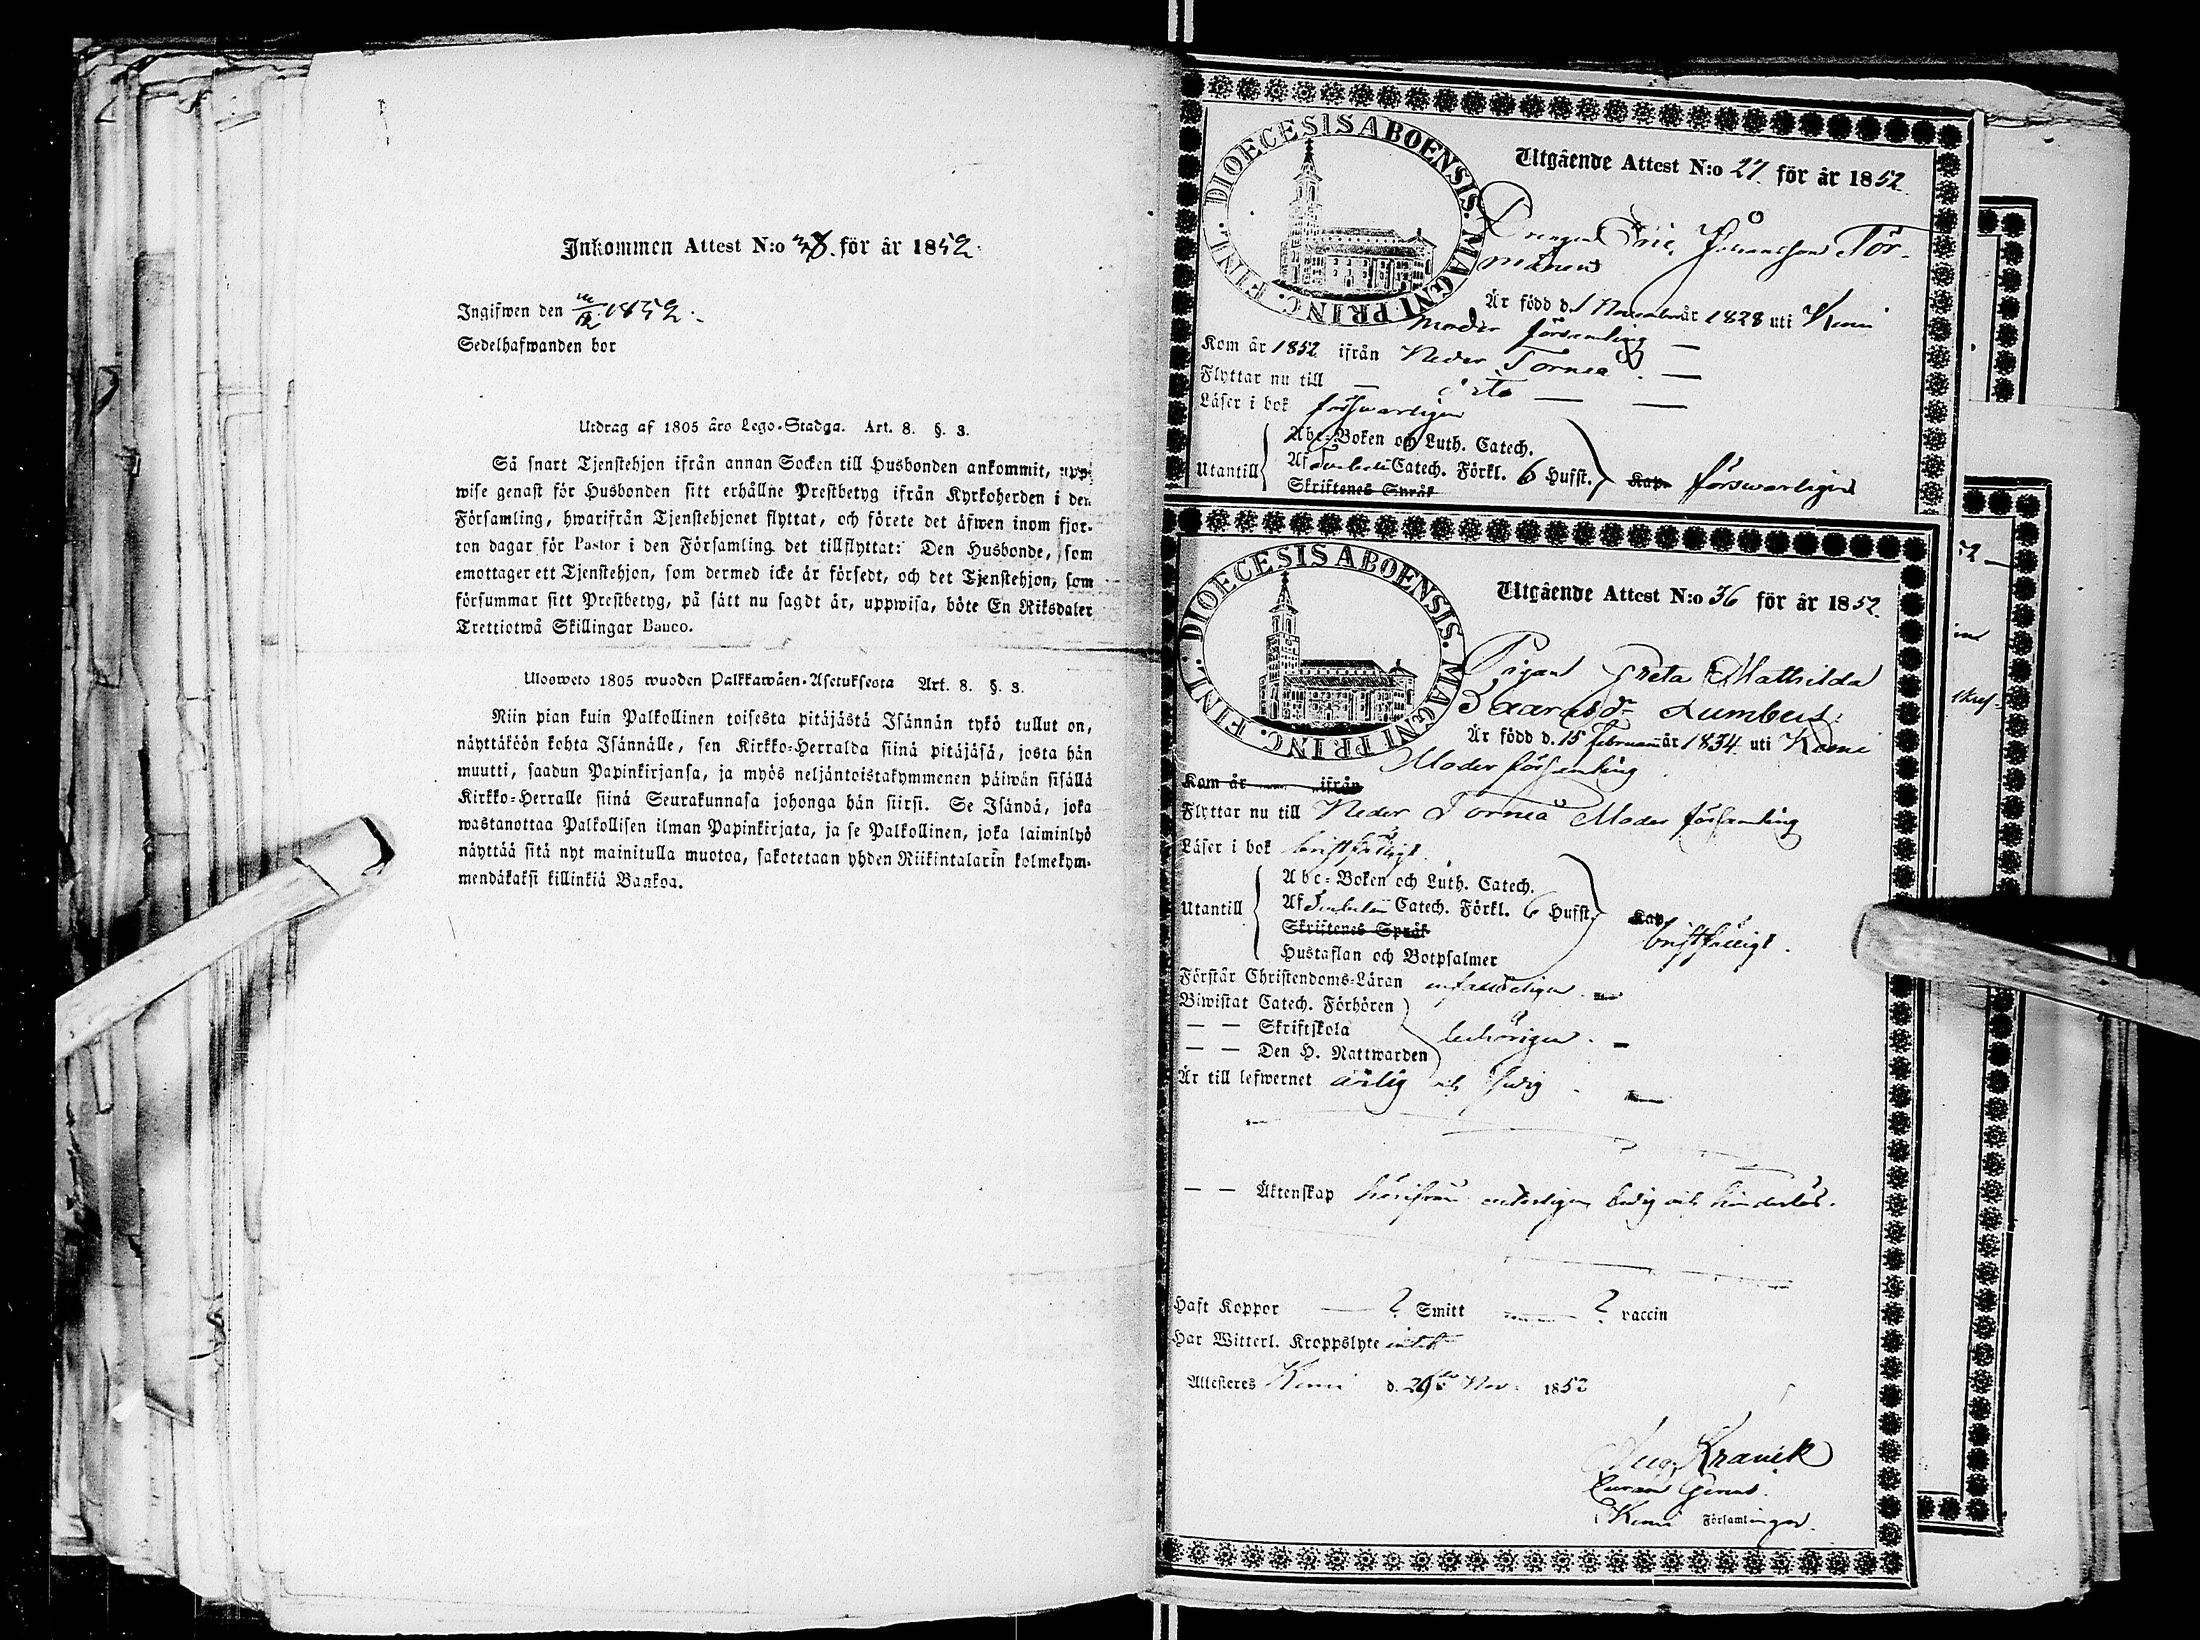 Inkommen Attest N:o 38. för år 1852.
Ingifwen den 1852.
Sedelhafwanden bor
Utdrag af 1805 års Lego-Stadga. Art. 8. §. 3.
Så snart Tjenstehjon ifrån annan Socken till Husbonden ankommit, upp-
wise genast för Husbonden sitt erhållne Prestbetyg ifrån Kyrkoherden i den
Församling, hwarifrån Tjenstehjonet flyttat, och förete det äfwen inom fjor-
ton dagar för Pastor i den Församling det tillflyttat: Den Husbonde, som
emottager ett Tjenstehjon, som dermed icke är försedt, och det Tjenstehjon, som
försummar sitt Prestbetyg, på sätt nu sagdt är, uppwisa, böte En Riksdaler
Trettiotwå Skillingar Banco.
Ulosweto 1805 wuoden Palkkawäen-Asetuksesta Art. 8. §. 3.
Niin pian kuin Palkollinen toisesta pitäjästä Isännän tykö tullut on,
näyttäköön kohta Isännälle, sen Kirkko-Herralda siinä pitäjäsä, josta hän
muutti, saadun Papinkirjansa, ja myös neljäntoistakymmenen päiwän sisällä
Kirkko-Herralle siinä Seurakunnasa johonga hän siirsi. Se Isändä, joka
wastanottaa Palkollisen ilman Papinkirjata, ja se Palkollinen, joka laiminlyö
näyttää sitä nyt mainitulla muotoa, sakotetaan yhden Riikintalarin kolmekym-
mendäkaksi killinkiä Bankoa.
DIOECESIS ABOENSIS. MAGNI PRINC. FINL.
Utgående Attest N:o 27. för år 1852.
Drengen Eric Johansson Tör-
mänen
Är född d. 1 November år 1828 uti Kemi
moder församling —
Kom år 1852 ifrån Neder Torneå. —
Flyttar nu till — dito — —
Läser i bok förswarligen
Utantill
Abc-Boken och Luth. Catech.
Af Catech. Förkl. 6 Hufst. Kap. förswarligen
Skriftenes Språk
DIOECESIS ABOENSIS. MAGNI PRINC. FINL.
Utgående Attest N:o 36 för år 1852.
Pigan Greta Mathilda
Zachrisdr Lumberg
Är född d. 15 Februari år 1834 uti Kemi
Moder församling
Kom år ifrån
Flyttar nu till Neder Torneå Moder församling
Läser i bok bristfälligt.
Utantill
Abc-Boken och Luth. Catech.
Af Catech. Förkl. 6 Hufst. Kap.
Skriftenes Språk
bristfälligt.
Hustaflan och Botpsalmer
Förstår Christendoms-Läran enfaldeligen. —
Biwistat Catech. Förhören
— — Skriftskola behörigen. —
— — Den H. Nattwarden
Är till lefwernet ärlig och sedig. —
— — Äktenskap härifrån wetterligen ledig och hinderlös.
Haft Koppor — ? Smitt — ? vaccin
Har Witterl. Kroppslyte intet
Attesteres Kemi d. 29de Nov. 1852
Aug. Kranck
i Kemi Församlingar.